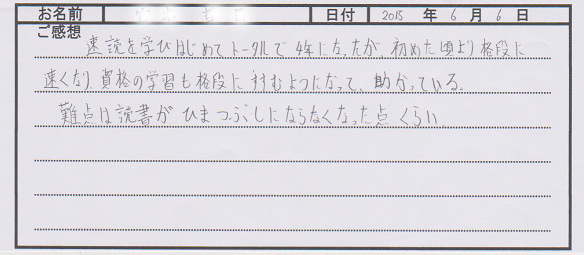 お名前 日付 2015 年 6 月 6 日
ご感想
速読を学びはじめてトータルで4年になったが、初めた頃より格段に
速くなり、資格の学習も格段にすすむようになって、助かっている。
難点は読書がひまつぶしにならなくなった点くらい